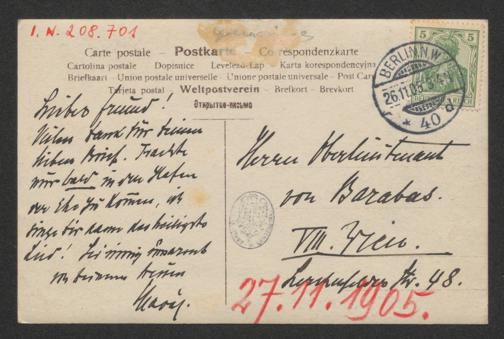 I. N. 208.701
Carte postale — Postkarte — Correspondenzkarte
Cartolina postale Dopisnice Levelező-Lap Karta korespondencyjna
Briefkaart - Union postale universelle - Unione postale universale - Post Card
Tarjeta postal Weltpostverein Brefkort - Brevkort
Открытое письмо
5 5
BERLIN N.W.
26.11.05
* 40 d
Lieber Freund!
Vielen Dank für Deinen
lieben Brief.
nur bald in den Hafen
der Ehe zu kommen, ich
singe Dir dann das heiligste
Lied! Sei innig umarmt
von Deinem treuen
Herrn Oberleutnant
von Barabas.
VIII. Wien.
Lerchenfelder Str. 48.
27.11.1905.